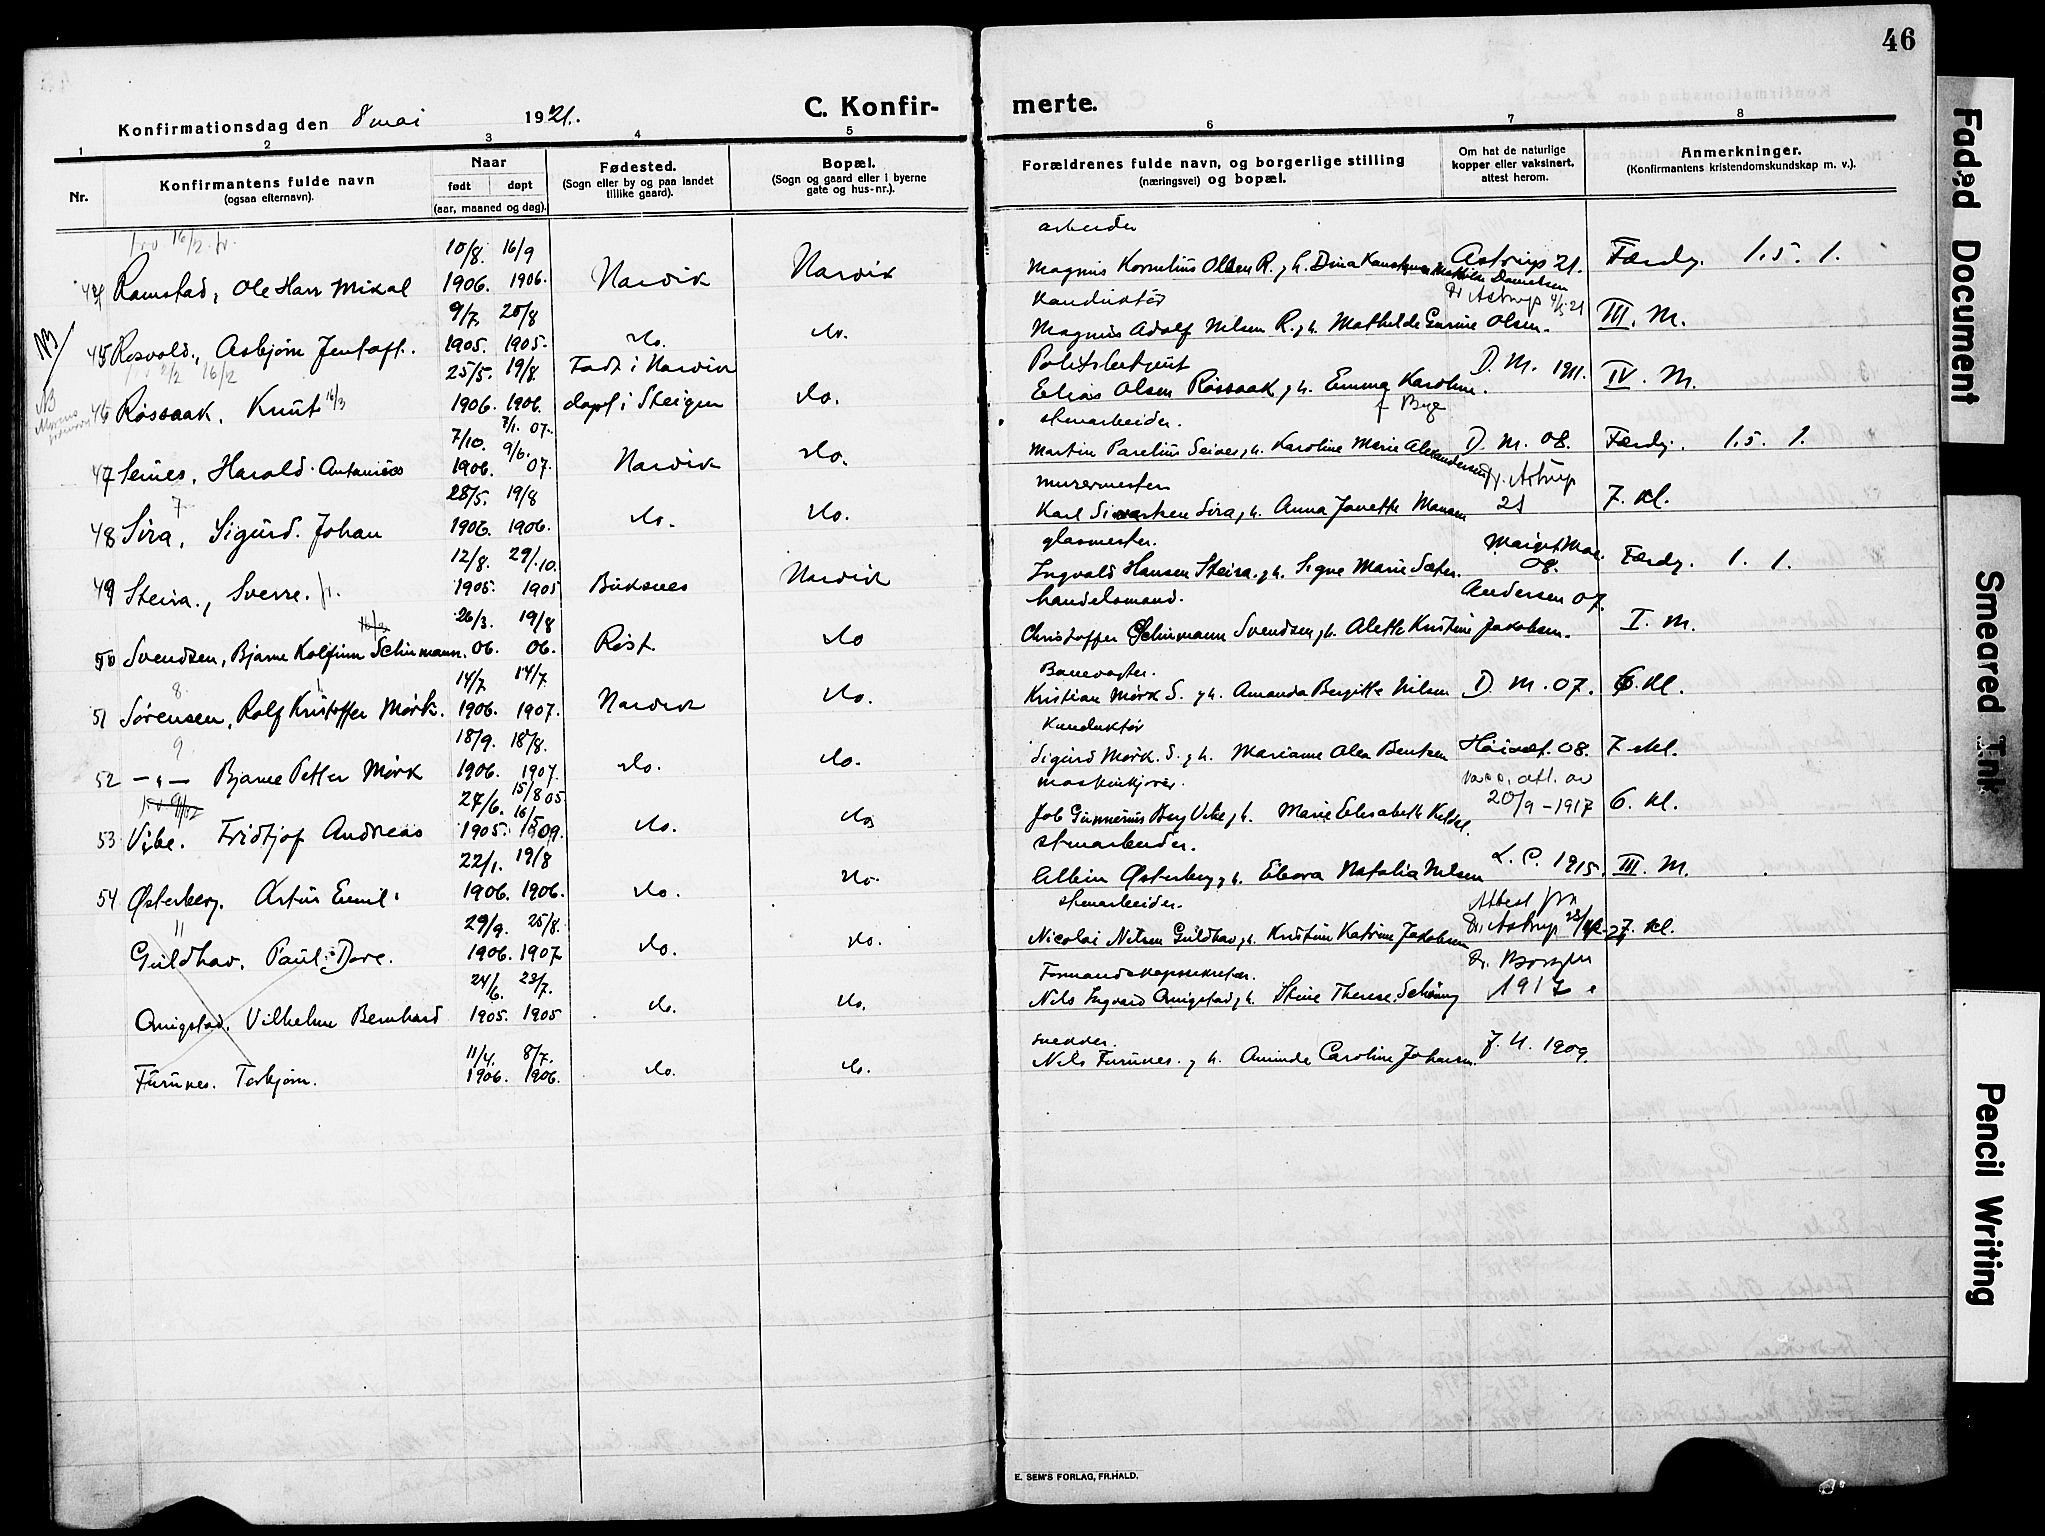 46
Konfirmationsdag den 8 mai 1921.
C. Konfirmerte.
1 2 3 4 5 6 7 8
Nr.
Konfirmantens fulde navn
(ogsaa efternavn).
Naar
født døpt
(aar, maaned og dag).
Fødested.
(Sogn eller by og paa landet
tillike gaard).
Bopæl.
(Sogn og gaard eller i byerne
gate og hus-nr.).
Forældrenes fulde navn, og borgerlige stilling
(næringsvei) og bopæl.
Om hat de naturlige
kopper eller vaksinert,
attest herom.
Anmerkninger.
(Konfirmantens kristendomskundskap m. v.).
10/8. 16/9 arbeider
44 Ramstad, Ole Hans Mikal 1906. 1906. Narvik Narvik Magnus Kornelius Olsen R. Astrup 21. Færdig. 1.5. 1.
NB 9/7 20/8 Konduktør Dr Astrup
45 Rosvold, Asbjørn Jentoft. 1905. 1905. do. do. Magnus Adolf Nilsen R. Mathilde Gurine Olsen. III. M.
25/5. 19/8 Født i Narvik Politibetjent D. M. 1911.
NB 46 Røssaak, Knut 16/3 1906. 1906. døpt i Steigen do. Elias Olsen Røssaak, Emma Karoline f Bye IV. M.
7/10. 9/6. stenarbeider.
47 Seines, Harald Antonius 1906. 07. Narvik do. Martin Parelius Seines, Karoline Marie D. M. 08. Færdig. 1.5. 1.
28/5. 19/8 murermester Dr. Astrup
48 Sira, Sigurd Johan 1906. 1906. do. do. Karl Sivertsen Sira, Anna Janette 21 7. kl.
12/8. 29/10. glasmester.
49 Steira, Sverre. 1905. 1905 Buksnes Narvik Ingvald Hansen Steira, Signe Marie Sæter. 08. Færdig. 1. 1.
26/3. 19/8 handelsmand. Andersen 07.
50 Svendsen, Bjarne Kolfinn Schirmann. 06. 06. Røst. do Christoffer Schirmann Svendsen, Alette Kristine Jakobsen. I. M.
14/7 14/7. Banevogter.
51 Sørensen, Rolf Kristoffer Mørk. 1906. 1907. Narvik do. Kristian Mørk S. Amanda Bergitte Nilsen D. M. 07. 6. kl.
18/9. 18/8. Konduktør
52 — „ — Bjarne Petter Mørk 1906. 1907. do. do. Sigurd Mørk. S. Marianne Alea Bentsen 08. 7 kl.
27/6. 15/8 05 maskinkjører. vacc. att. av
53 Vibe. Fridtjof Andreas 1905. do. do Job Gunnerius Berg Vibe, Marie Elisabeth 20/9 - 1917 6. kl.
22/1. 19/8 stenarbeider.
54 Østerberg. Artur Emil. 1906. 1906. do. do. Albin Østerberg, Natalia Nilsen L. C. 1915. III. M.
29/9. 25/8. stenarbeider. Attest fra
Guldhav. Paul Dore. 1906. 1907 do. do. Nicolai Nilsen Guldhav, Kristine Katrine Jakobsen Dr. Astrup 7. kl.
24/6. 23/7. Formandskapssekretær. Dr. Borgen
Omigstad. Vilhelm Bernhard 1905. 1905 do. do. Nils Ingvard Omigstad, Stine Therese Schøning 1917
11/4. 8/7. snedker.
Furunes. Torbjørn. 1906. 1906. do. do. Nils Furunes. Aminda Caroline Johansen. J. H. 1909.
E. SEM'S FORLAG, FR.HALD.
Faded Document
Smeared Ink
Pencil Writing